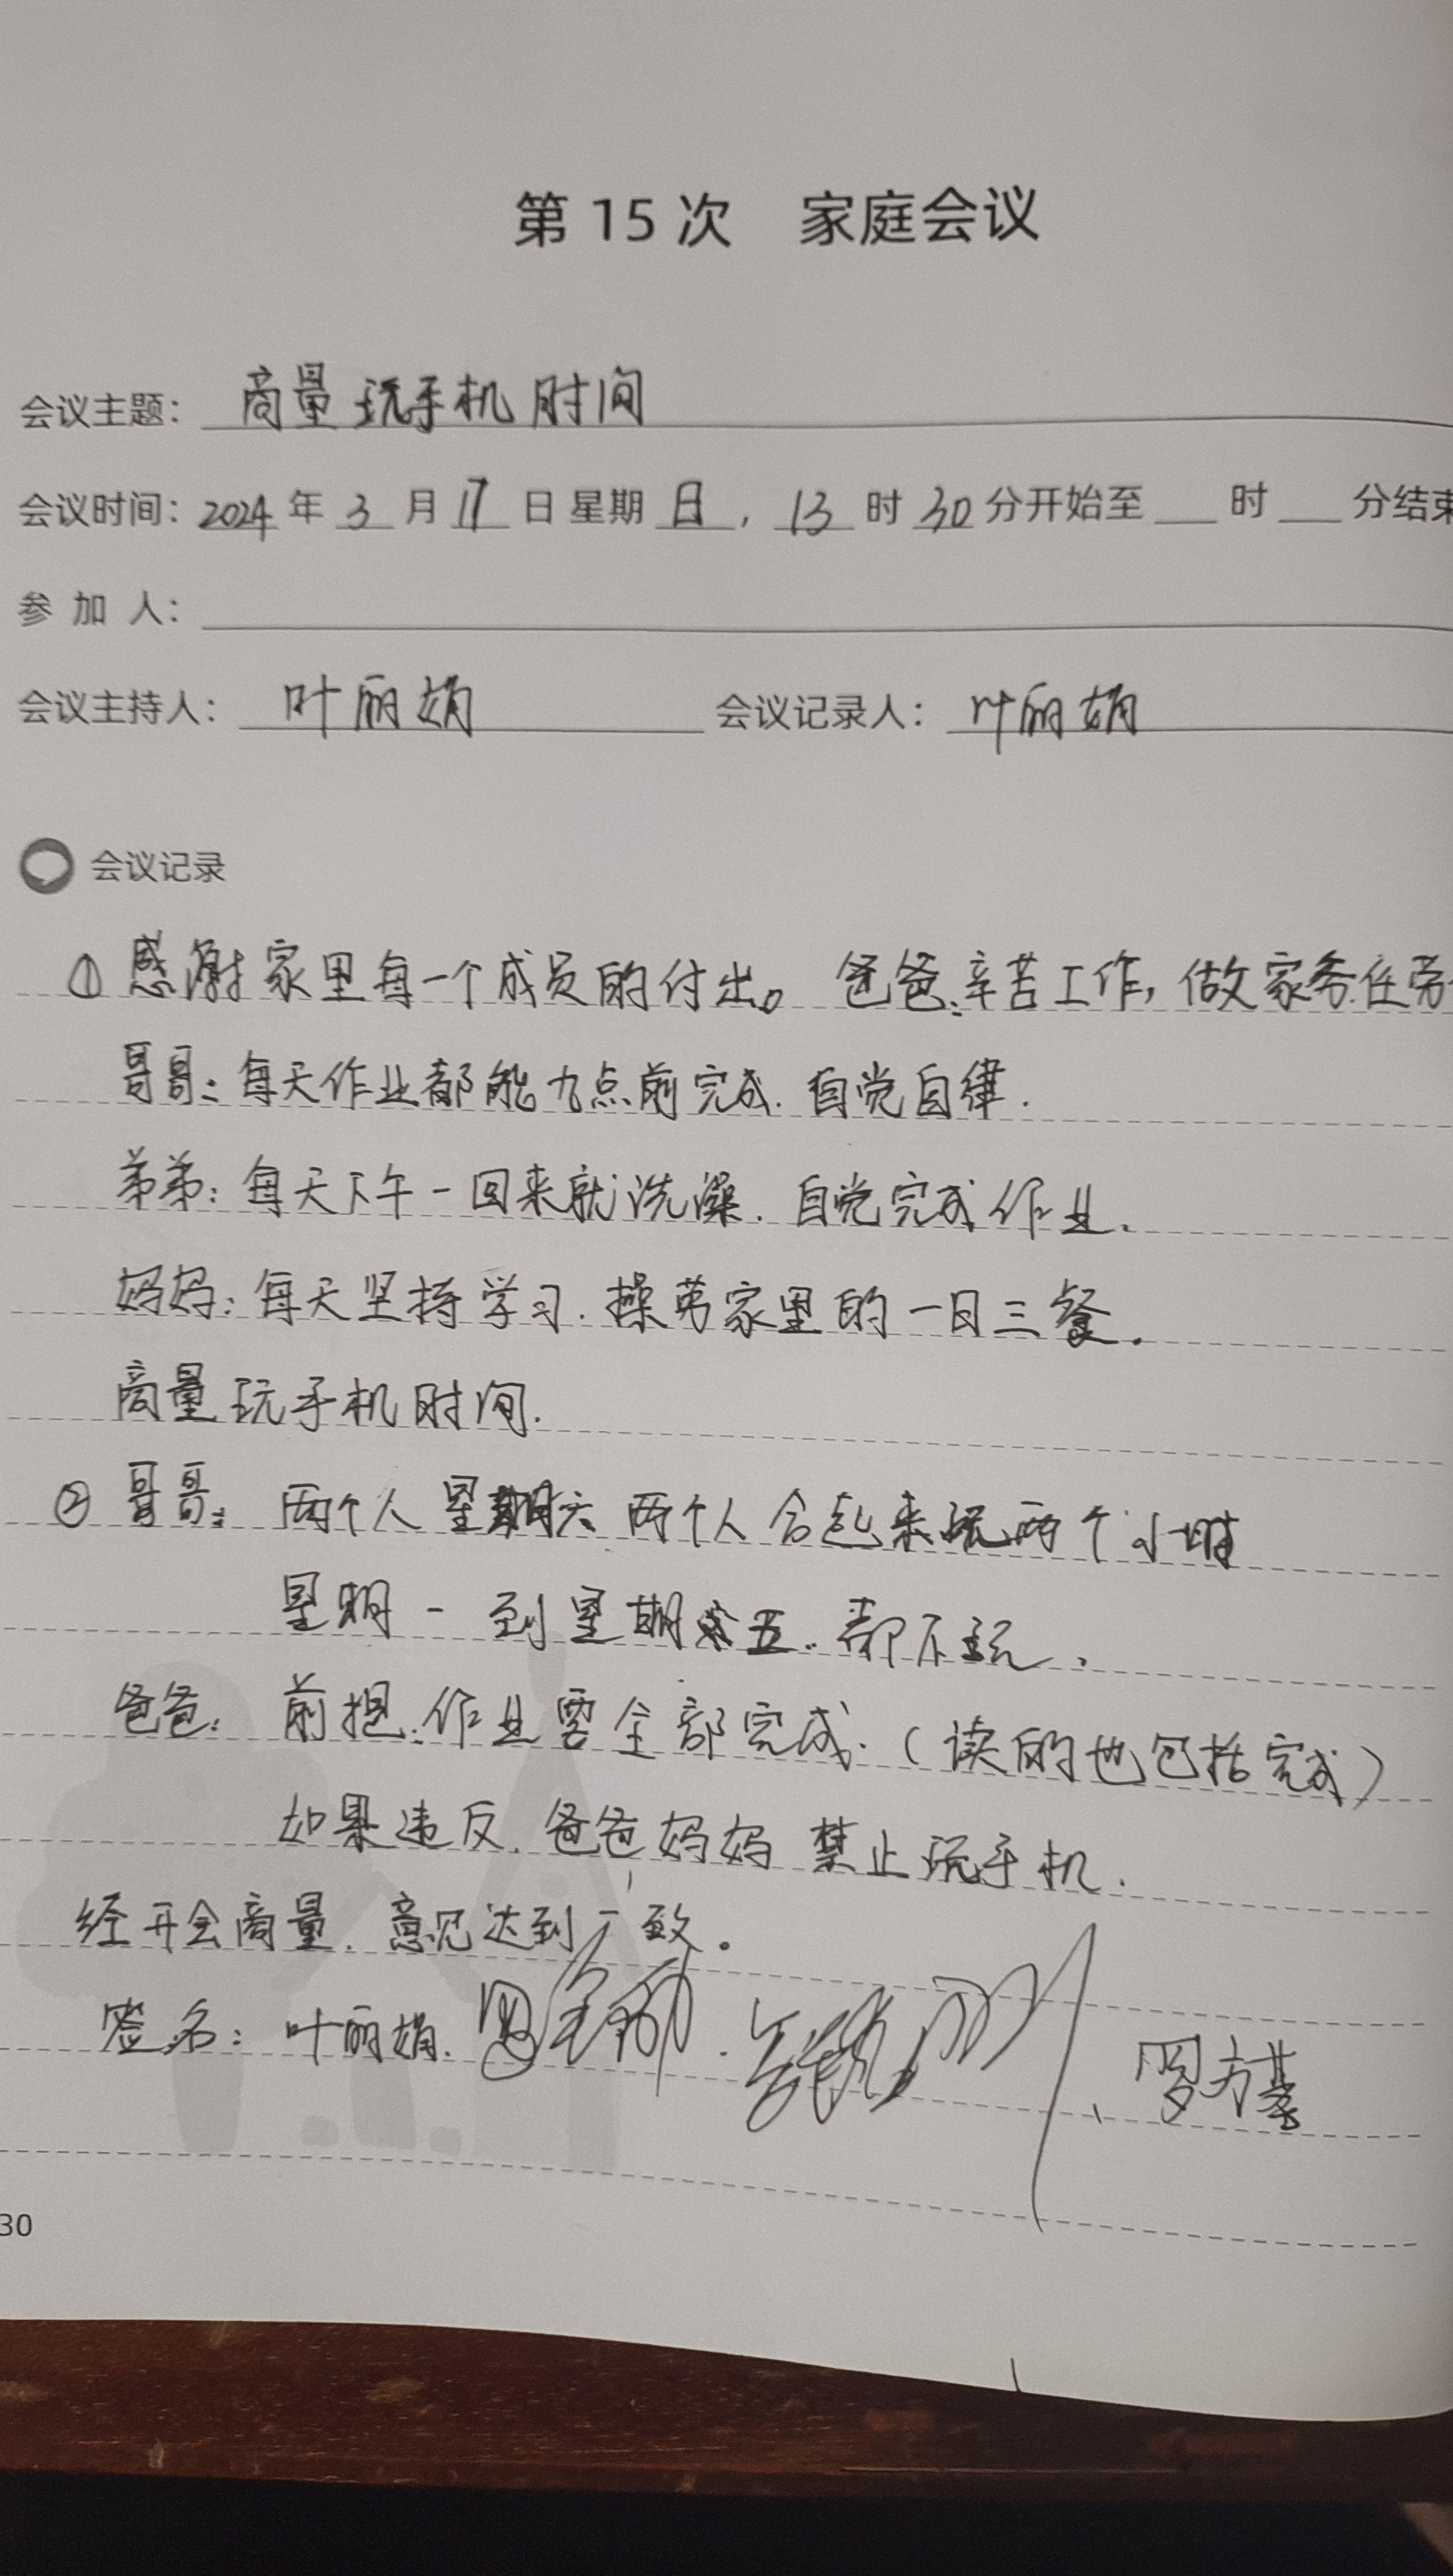 第 15 次 家庭会议
会议主题： 商量玩手机时间
会议时间：2024 年 3 月 17 日 星期 日 ， 13 时 30 分开始至 时 分结束
参 加 人：
会议主持人： 叶丽娟 会议记录人： 叶丽娟
会议记录
① 感谢家里每一个成员的付出。 爸爸：辛苦工作，做家务任劳
哥哥：每天作业都能九点前完成. 自觉自律.
弟弟：每天下午一回来就洗澡. 自觉完成作业.
妈妈：每天坚持学习. 操劳家里的一日三餐.
商量玩手机时间.
② 哥哥： 两个人星期六 两个人合起来玩两个小时
星期一到星期五. 都不玩.
爸爸： 前提：作业要全部完成.（读的也包括完成）
如果违反. 爸爸妈妈 禁止玩手机.
经开会商量. 意见达到一致。
签名：叶丽娟.
30